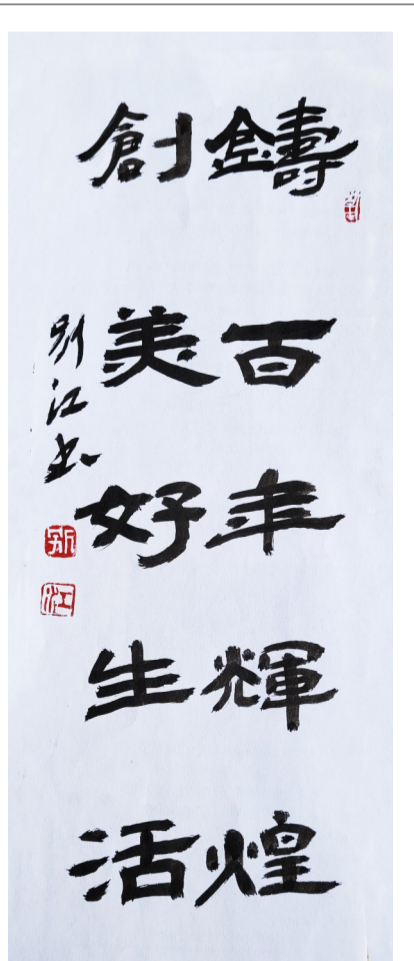 鑄百年輝煌
創美好生活
江书